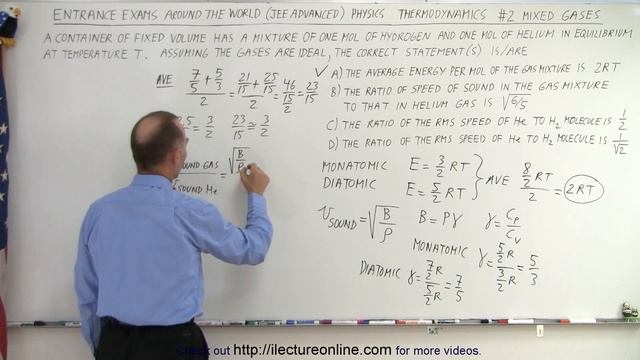 ENTRANCE EXAMS AROUND THE WORLD (JEE ADVANCED) PHYSICS THERMODYNAMICS #2 MIXED GASES
A CONTAINER OF FIXED VOLUME HAS A MIXTURE OF ONE MOL OF HYDROGEN AND ONE MOL OF HELIUM IN EQUILIBRIUM
AT TEMPERATURE T. ASSUMING THE GASES ARE IDEAL, THE CORRECT STATEMENT(S) IS/ARE
✓ A) THE AVERAGE ENERGY PER MOL OF THE GAS MIXTURE IS 2RT
B) THE RATIO OF SPEED OF SOUND IN THE GAS MIXTURE
TO THAT IN HELIUM GAS IS √(6/5)
C) THE RATIO OF THE RMS SPEED OF He TO H₂ MOLECULE IS 1/2
D) THE RATIO OF THE RMS SPEED OF He TO H₂ MOLECULE IS 1/√2
AVE (7/5 + 5/3)/2 = (21/15 + 25/15)/2 = (46/15)/2 = 23/15
= 3/2 23/15 ≅ 3/2
SOUND GAS = √(B/ρ
SOUND He
MONATOMIC E = 3/2 RT
DIATOMIC E = 5/2 RT
AVE (8/2 RT)/2 = 2RT
V SOUND = √(B/ρ) B = Pγ γ = Cp/Cv
MONATOMIC γ = (5/2 R)/(3/2 R) = 5/3
DIATOMIC γ = (7/2 R)/(5/2 R) = 7/5
Check out http://ilectureonline.com for more videos.